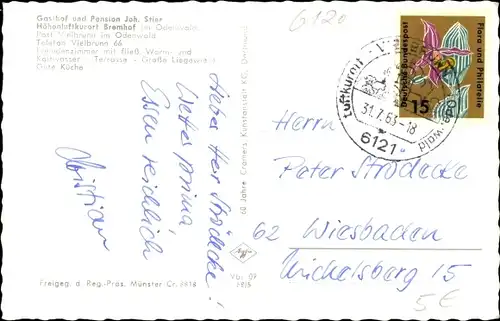 Gasthof und Pension Joh. Stier
Höhenluftkurort Bremhof im Odenwald
Post Vielbrunn im Odenwald
Telefon Vielbrunn 66
Fremdenzimmer mit fließ. Warm- und
Kaltwasser Terrasse - Große Liegewiese
Gute Küche
Lieber Herr Strödecke!
Wetter prima,
Essen reichlich
Christian
60 Jahre Cramers Kunstanstalt KG, Dortmund
Freigeg. d. Reg.-Präs. Münster Cr. 8818
Vbr 09
6120
Luftkurort
31.7.63-18
6121
Flora und Philatelie
Deutsche Bundespost
15
Herrn
Peter Strödecke
62 Wiesbaden
Michelsberg 15
5€